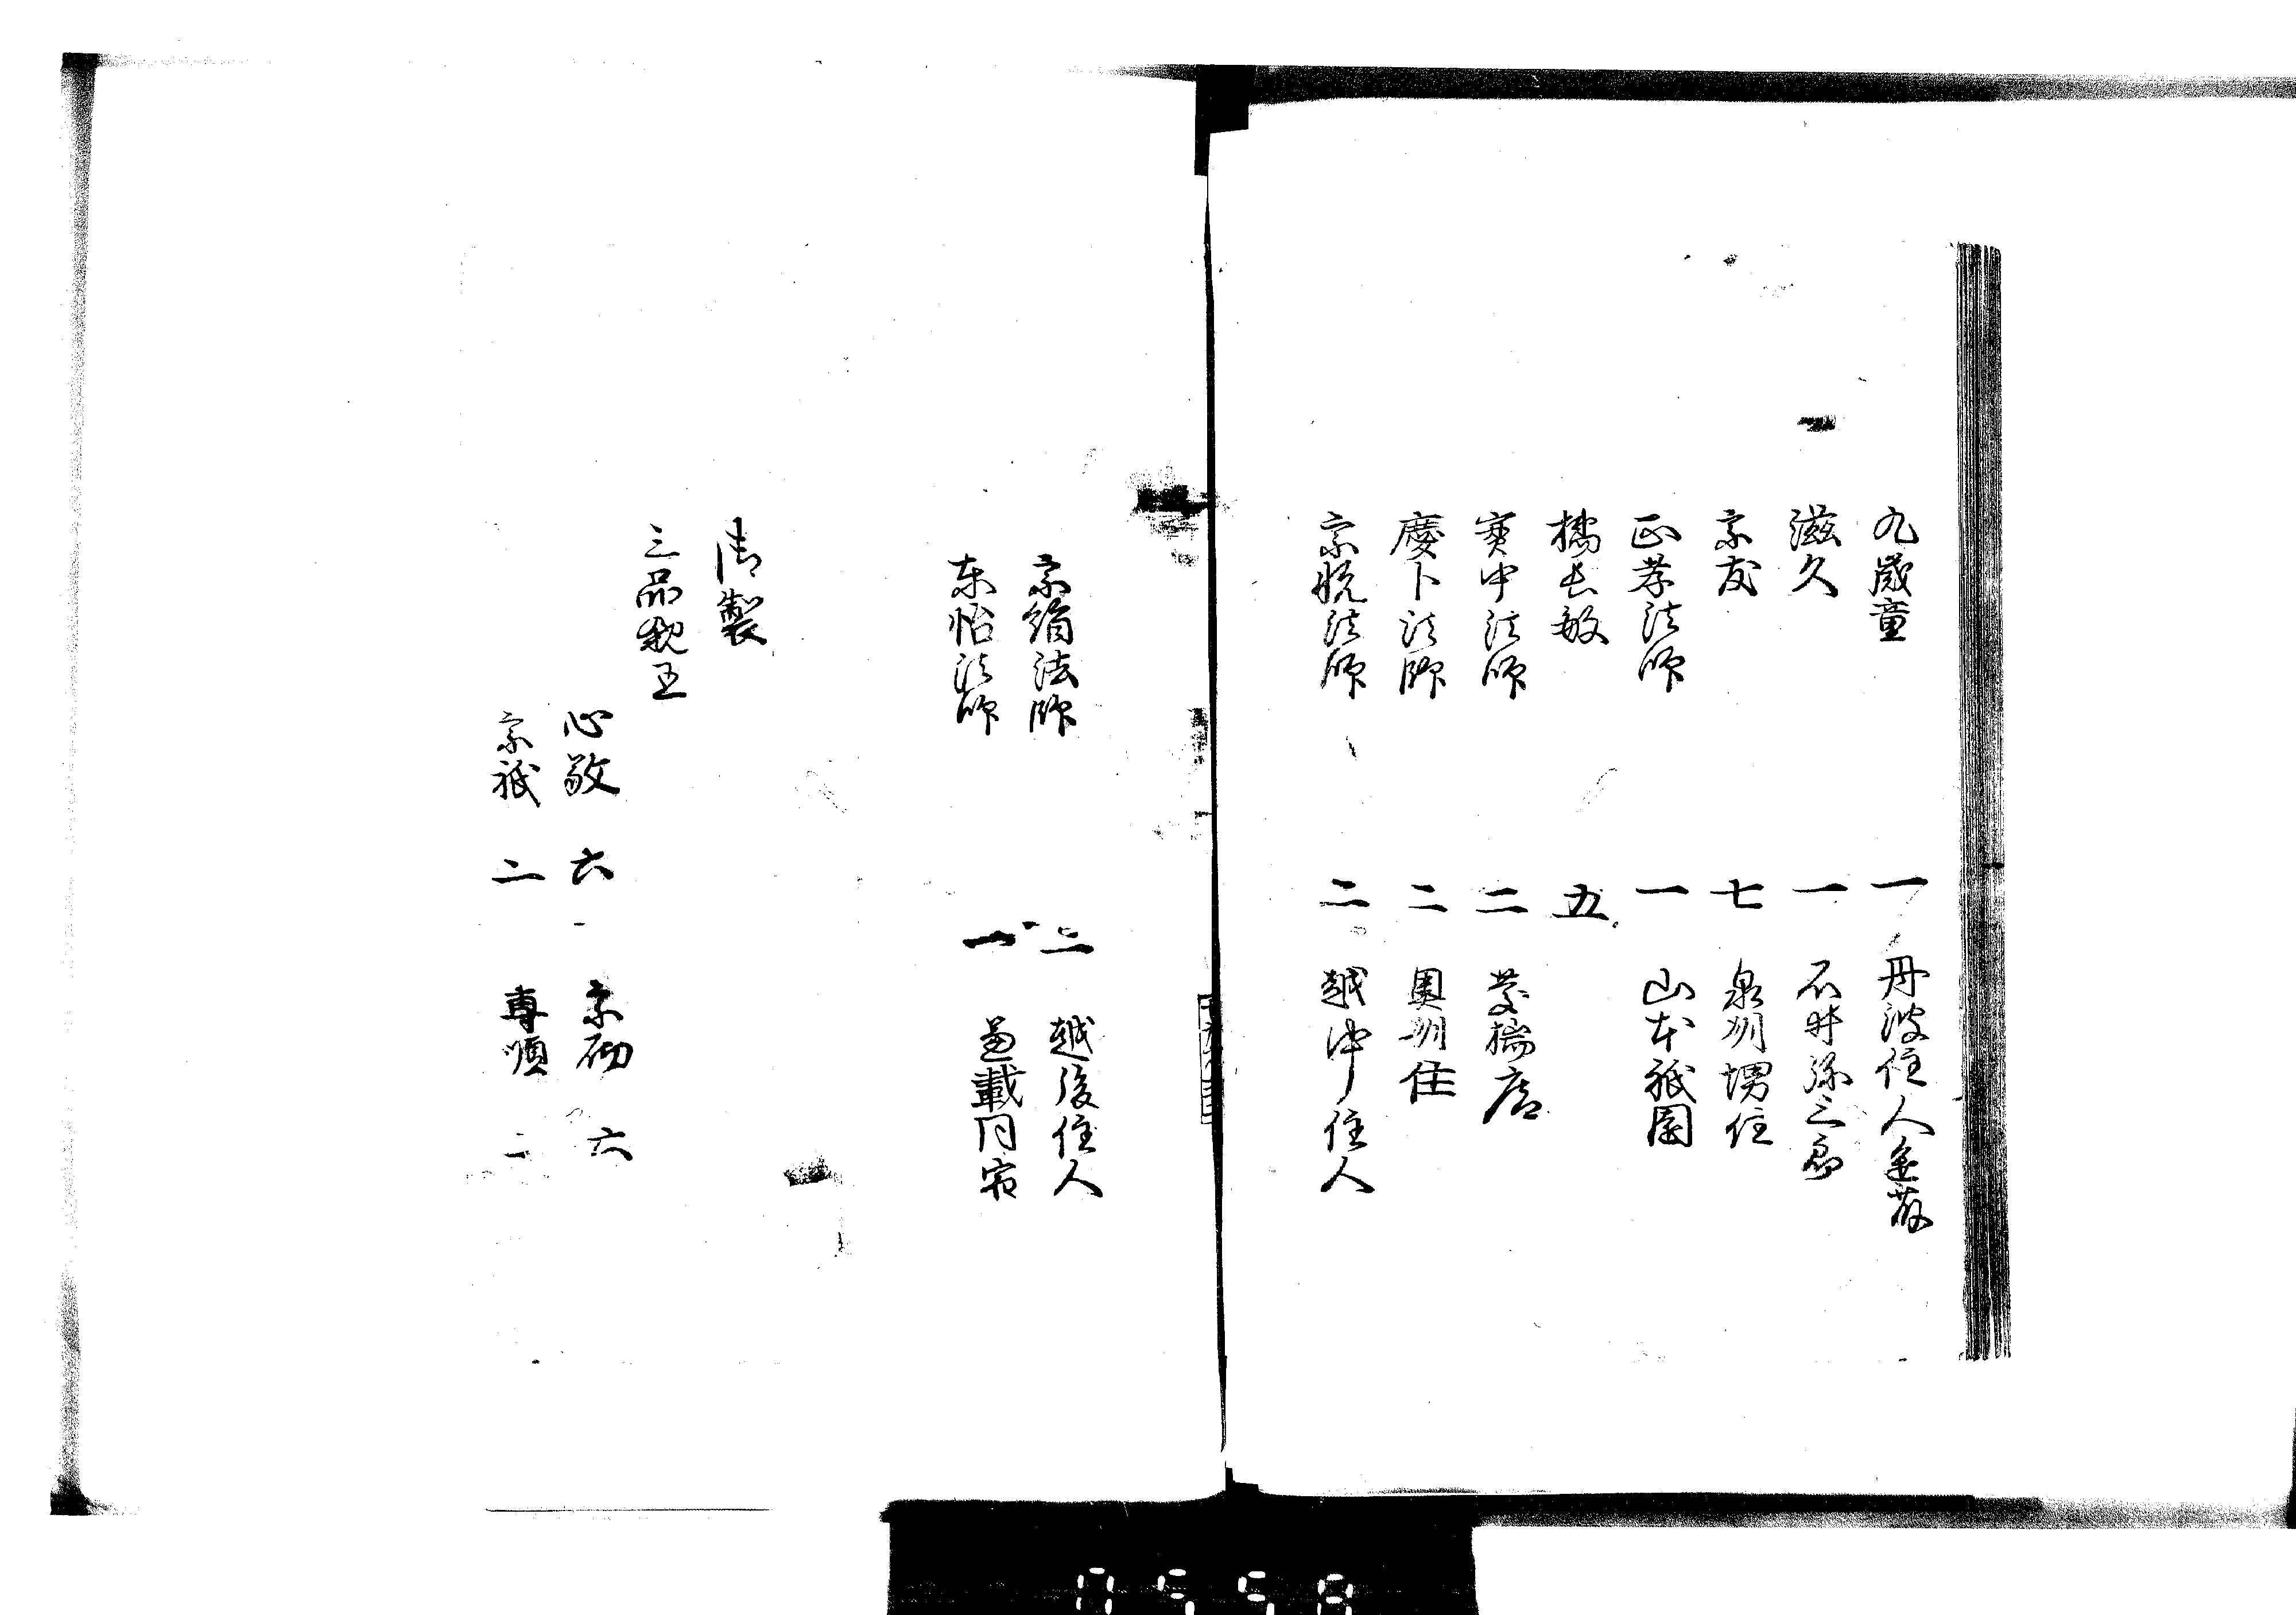 九歳童 一 丹波住人
滋久 一 石井孫三郎
宗友 七 泉州堺住
正孝法師 一 山本祇園
橘長敏 五
寅中法師 二
慶卜法師 二 奥州住
宗悦法師 二 越中住人
宗絹法師 二 越後住人
法師 一 兼載同宿
御製
三品親王
心敬 六 宗砌 六
宗祇 二 専順 二